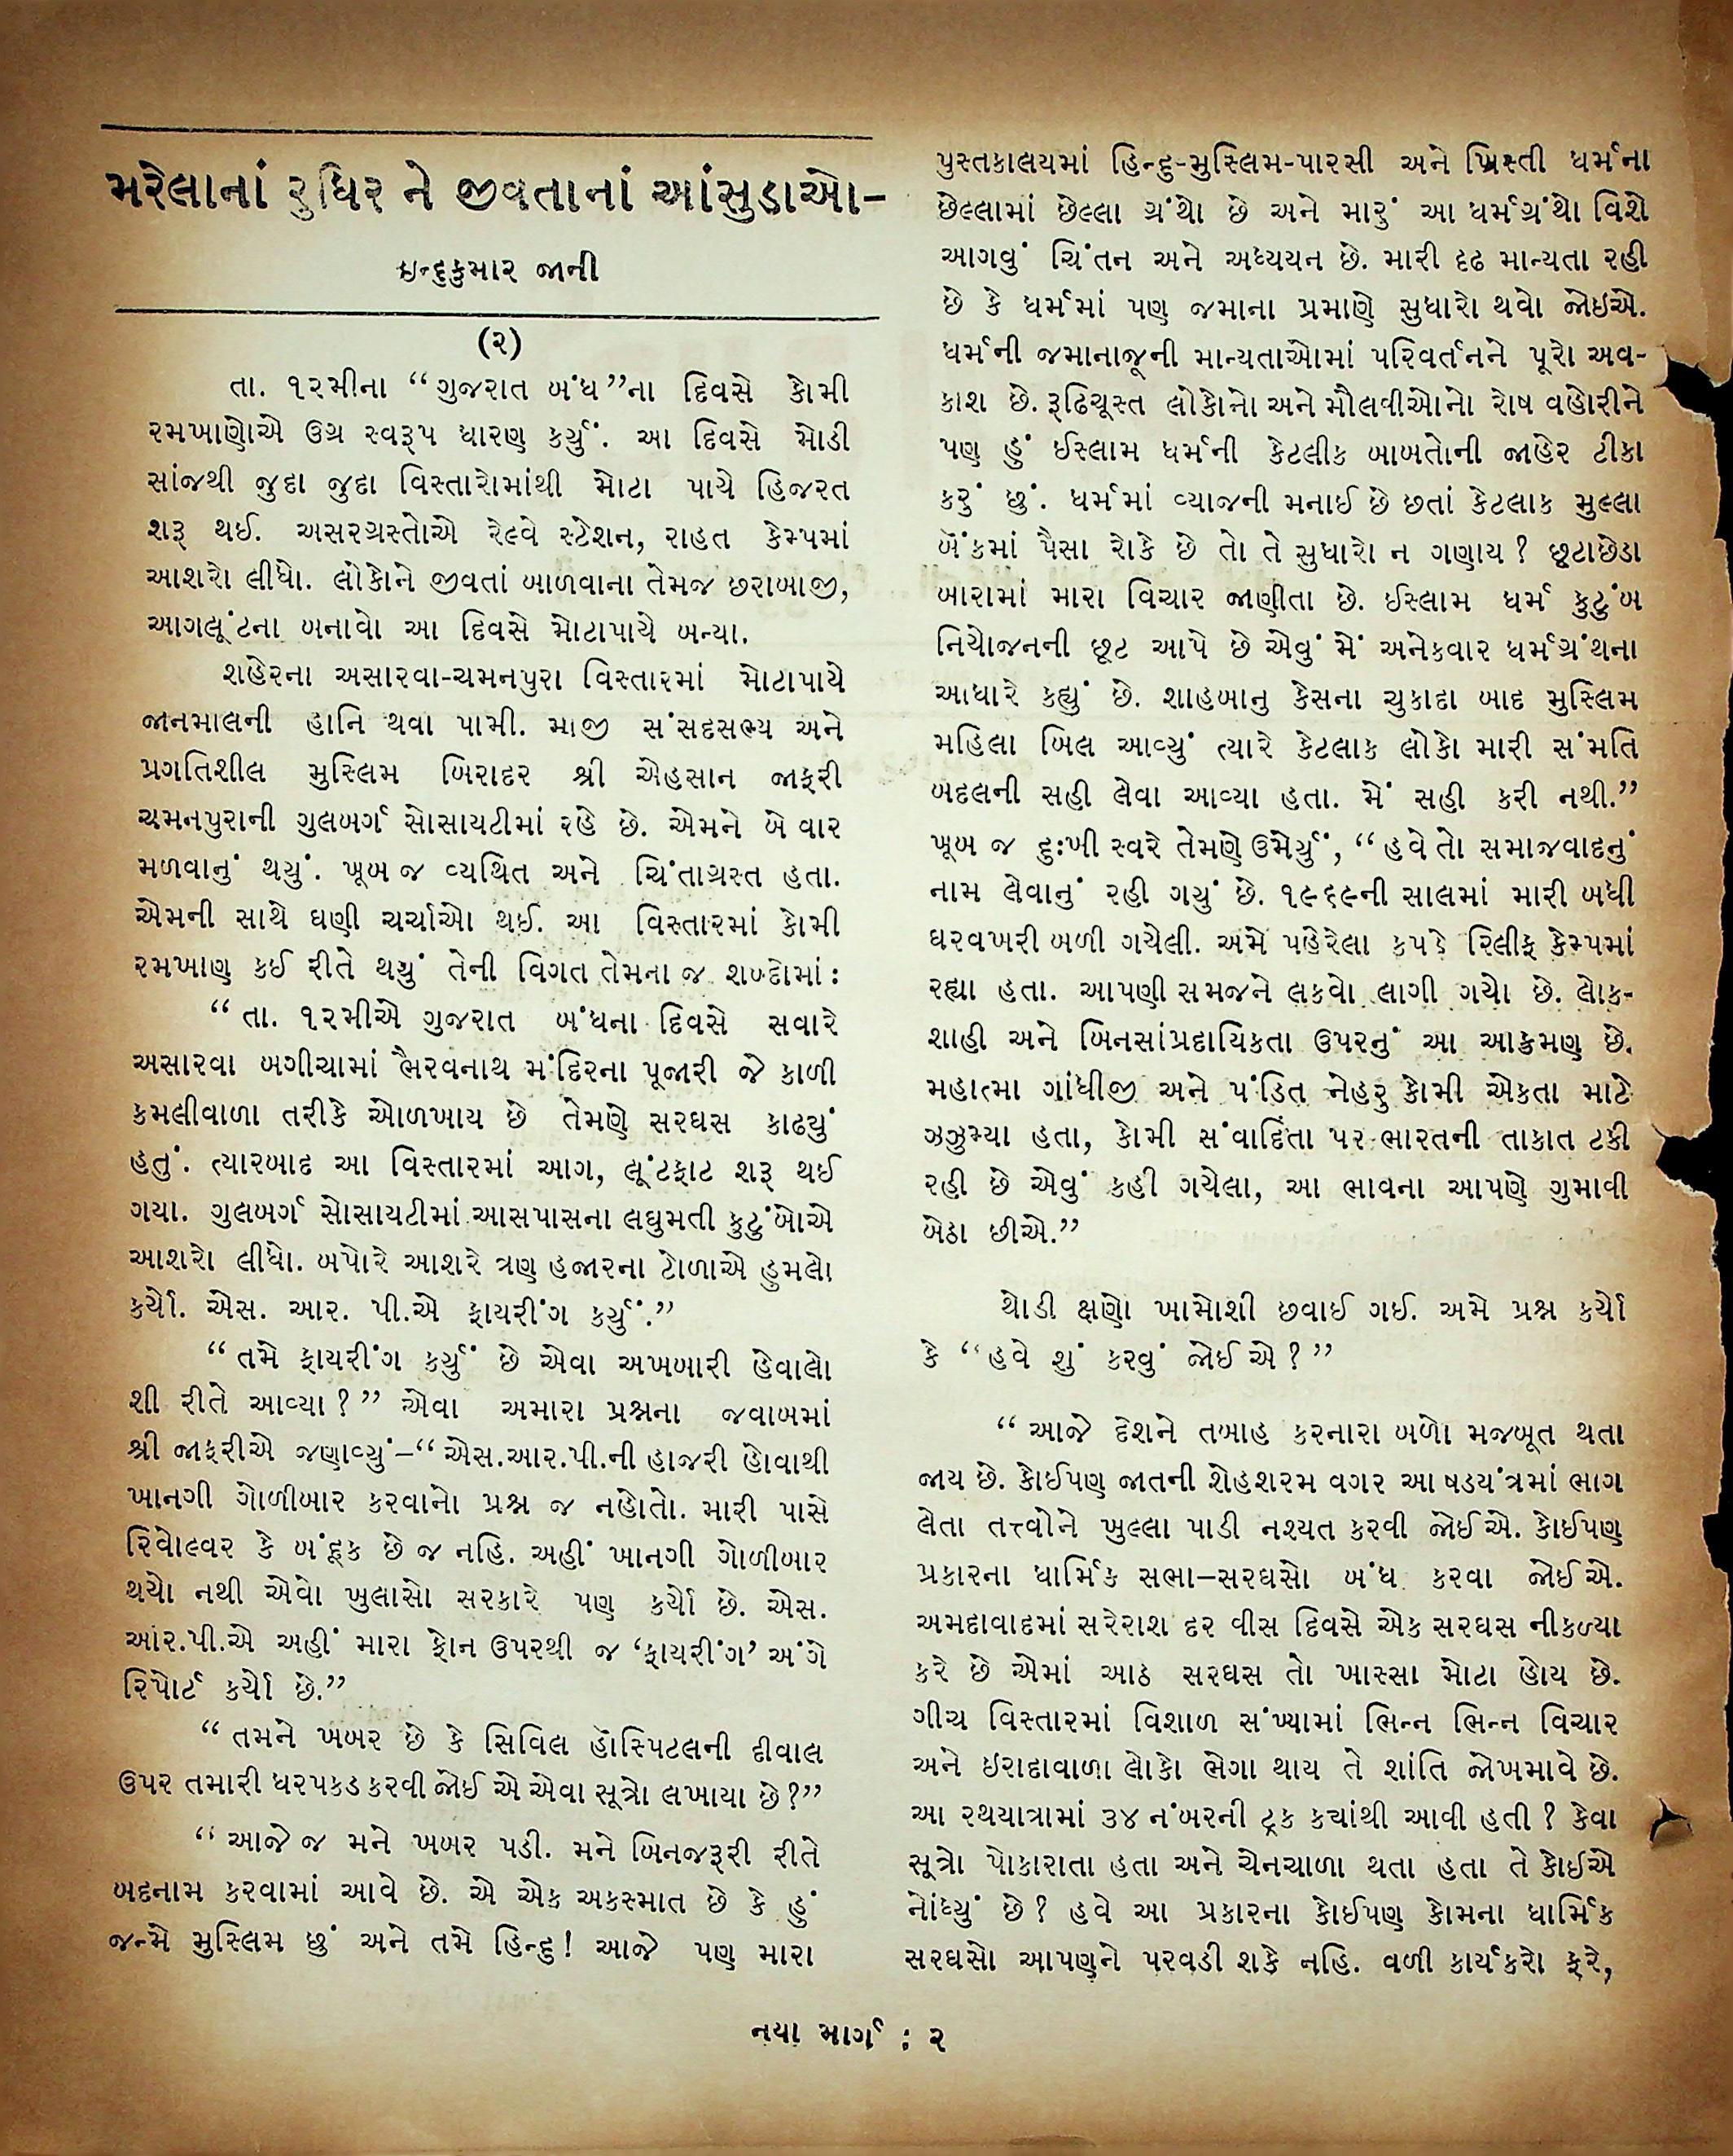 મરેલાનાં રુધિર ને જીવતાનાં આંસુડાઓ–
ઇન્દુકુમાર જાની
(૨)
તા. ૧૨મીના “ગુજરાત બંધ”ના દિવસે કોમી
રમખાણોએ ઉગ્ર સ્વરૂપ ધારણ કર્યું. આ દિવસે મોડી
સાંજથી જુદા જુદા વિસ્તારોમાંથી મોટા પાયે હિજરત
શરૂ થઈ. અસરગ્રસ્તોએ રેલ્વે સ્ટેશન, રાહત કેમ્પમાં
આશરો લીધો. લોકોને જીવતાં બાળવાના તેમજ છરાબાજી,
આગલૂંટના બનાવો આ દિવસે મોટાપાયે બન્યા.
શહેરના અસારવા-ચમનપુરા વિસ્તારમાં મોટાપાયે
જાનમાલની હાનિ થવા પામી. માજી સંસદસભ્ય અને
પ્રગતિશીલ મુસ્લિમ બિરાદર શ્રી એહસાન જાફરી
ચમનપુરાની ગુલબર્ગ સોસાયટીમાં રહે છે. એમને બે વાર
મળવાનું થયું. ખૂબ જ વ્યથિત અને ચિંતાગ્રસ્ત હતા.
એમની સાથે ઘણી ચર્ચાઓ થઈ. આ વિસ્તારમાં કોમી
રમખાણ કઈ રીતે થયું તેની વિગત તેમના જ શબ્દોમાં :
“તા. ૧૨મીએ ગુજરાત બંધના દિવસે સવારે
અસારવા બગીચામાં ભૈરવનાથ મંદિરના પૂજારી જે કાળી
કમલીવાળા તરીકે ઓળખાય છે તેમણે સરઘસ કાઢયું
હતું. ત્યારબાદ આ વિસ્તારમાં આગ, લૂંટફાટ શરૂ થઈ
ગયા. ગુલબર્ગ સોસાયટીમાં આસપાસના લઘુમતી કુટુંબોએ
આશરો લીધો. બપોરે આશરે ત્રણ હજારના ટોળાએ હુમલો
કર્યો. એસ. આર. પી.એ ફાયરીંગ કર્યું.”
“તમે ફાયરીંગ કર્યું છે એવા અખબારી હેવાલો
શી રીતે આવ્યા ?” એવા અમારા પ્રશ્નના જવાબમાં
શ્રી જાફરીએ જણાવ્યું–“એસ.આર.પી.ની હાજરી હોવાથી
ખાનગી ગોળીબાર કરવાનો પ્રશ્ન જ નહોતો. મારી પાસે
રિવોલ્વર કે બંદૂક છે જ નહિ. અહીં ખાનગી ગોળીબાર
થયો નથી એવો ખુલાસો સરકારે પણ કર્યો છે. એસ.
આર.પી.એ અહીં મારા ફોન ઉપરથી જ ‘ફાયરીંગ’ અંગે
રિપોર્ટ કર્યો છે.”
“તમને ખબર છે કે સિવિલ હૉસ્પિટલની દીવાલ
ઉપર તમારી ધરપકડ કરવી જોઈ એ એવા સૂત્રો લખાયા છે ?”
“આજે જ મને ખબર પડી. મને બિનજરૂરી રીતે
બદનામ કરવામાં આવે છે. એ એક અકસ્માત છે કે હું
જન્મે મુસ્લિમ છું અને તમે હિન્દુ! આજે પણ મારા
પુસ્તકાલયમાં હિન્દુ-મુસ્લિમ-પારસી અને ખ્રિસ્તી ધર્મના
છેલ્લામાં છેલ્લા ગ્રંથો છે અને મારું આ ધર્મગ્રંથો વિશે
આગવું ચિંતન અને અધ્યયન છે. મારી દૃઢ માન્યતા રહી
છે કે ધર્મમાં પણ જમાના પ્રમાણે સુધારો થવો જોઇએ.
ધર્મની જમાનાજૂની માન્યતાઓમાં પરિવર્તનને પૂરો અવ-
કાશ છે. રૂઢિચૂસ્ત લોકોનો અને મૌલવીઓનો રોષ વહોરીને
પણ હું ઈસ્લામ ધર્મની કેટલીક બાબતોની જાહેર ટીકા
કરું છું. ધર્મમાં વ્યાજની મનાઈ છે છતાં કેટલાક મુલ્લા
બૅંકમાં પૈસા રોકે છે તો તે સુધારો ન ગણાય ? છૂટાછેડા
બારામાં મારા વિચાર જાણીતા છે. ઈસ્લામ ધર્મ કુટુંબ
નિયોજનની છૂટ આપે છે એવું મેં અનેકવાર ધર્મગ્રંથના
આધારે કહ્યું છે. શાહબાનુ કેસના ચુકાદા બાદ મુસ્લિમ
મહિલા બિલ આવ્યું ત્યારે કેટલાક લોકો મારી સંમતિ
બદલની સહી લેવા આવ્યા હતા. મેં સહી કરી નથી.”
ખૂબ જ દુઃખી સ્વરે તેમણે ઉમેર્યું, “હવે તો સમાજવાદનું
નામ લેવાનું રહી ગયું છે. ૧૯૬૯ની સાલમાં મારી બધી
ઘરવખરી બળી ગયેલી. અમે પહેરેલા કપડે રિલીફ કેમ્પમાં
રહ્યા હતા. આપણી સમજને લકવો લાગી ગયો છે. લોક-
શાહી અને બિનસાંપ્રદાયિકતા ઉપરનું આ આક્રમણ છે.
મહાત્મા ગાંધીજી અને પંડિત નેહરુ કોમી એકતા માટે
ઝઝુમ્યા હતા, કોમી સંવાદિતા પર ભારતની તાકાત ટકી
રહી છે એવું કહી ગયેલા, આ ભાવના આપણે ગુમાવી
બેઠા છીએ.”
થોડી ક્ષણો ખામોશી છવાઈ ગઈ. અમે પ્રશ્ન કર્યો
કે “હવે શું કરવું જોઈ એ ?”
“આજે દેશને તબાહ કરનારા બળો મજબૂત થતા
જાય છે. કોઈપણ જાતની શેહશરમ વગર આ ષડયંત્રમાં ભાગ
લેતા તત્ત્વોને ખુલ્લા પાડી નશ્યત કરવી જોઈ એ. કોઈપણ
પ્રકારના ધાર્મિક સભા–સરઘસો બંધ કરવા જોઈ એ.
અમદાવાદમાં સરેરાશ દર વીસ દિવસે એક સરઘસ નીકળ્યા
કરે છે એમાં આઠ સરઘસ તો ખાસ્સા મોટા હોય છે.
ગીચ વિસ્તારમાં વિશાળ સંખ્યામાં ભિન્ન ભિન્ન વિચાર
અને ઇરાદાવાળા લોકો ભેગા થાય તે શાંતિ જોખમાવે છે.
આ રથયાત્રામાં ૩૪ નંબરની ટ્રક કયાંથી આવી હતી ? કેવા
સૂત્રો પોકારાતા હતા અને ચેનચાળા થતા હતા તે કોઈએ
નોંધ્યું છે ? હવે આ પ્રકારના કોઈપણ કોમના ધાર્મિક
સરઘસો આપણને પરવડી શકે નહિ. વળી કાર્યકરો ફરે,
નયા માર્ગ : ૨